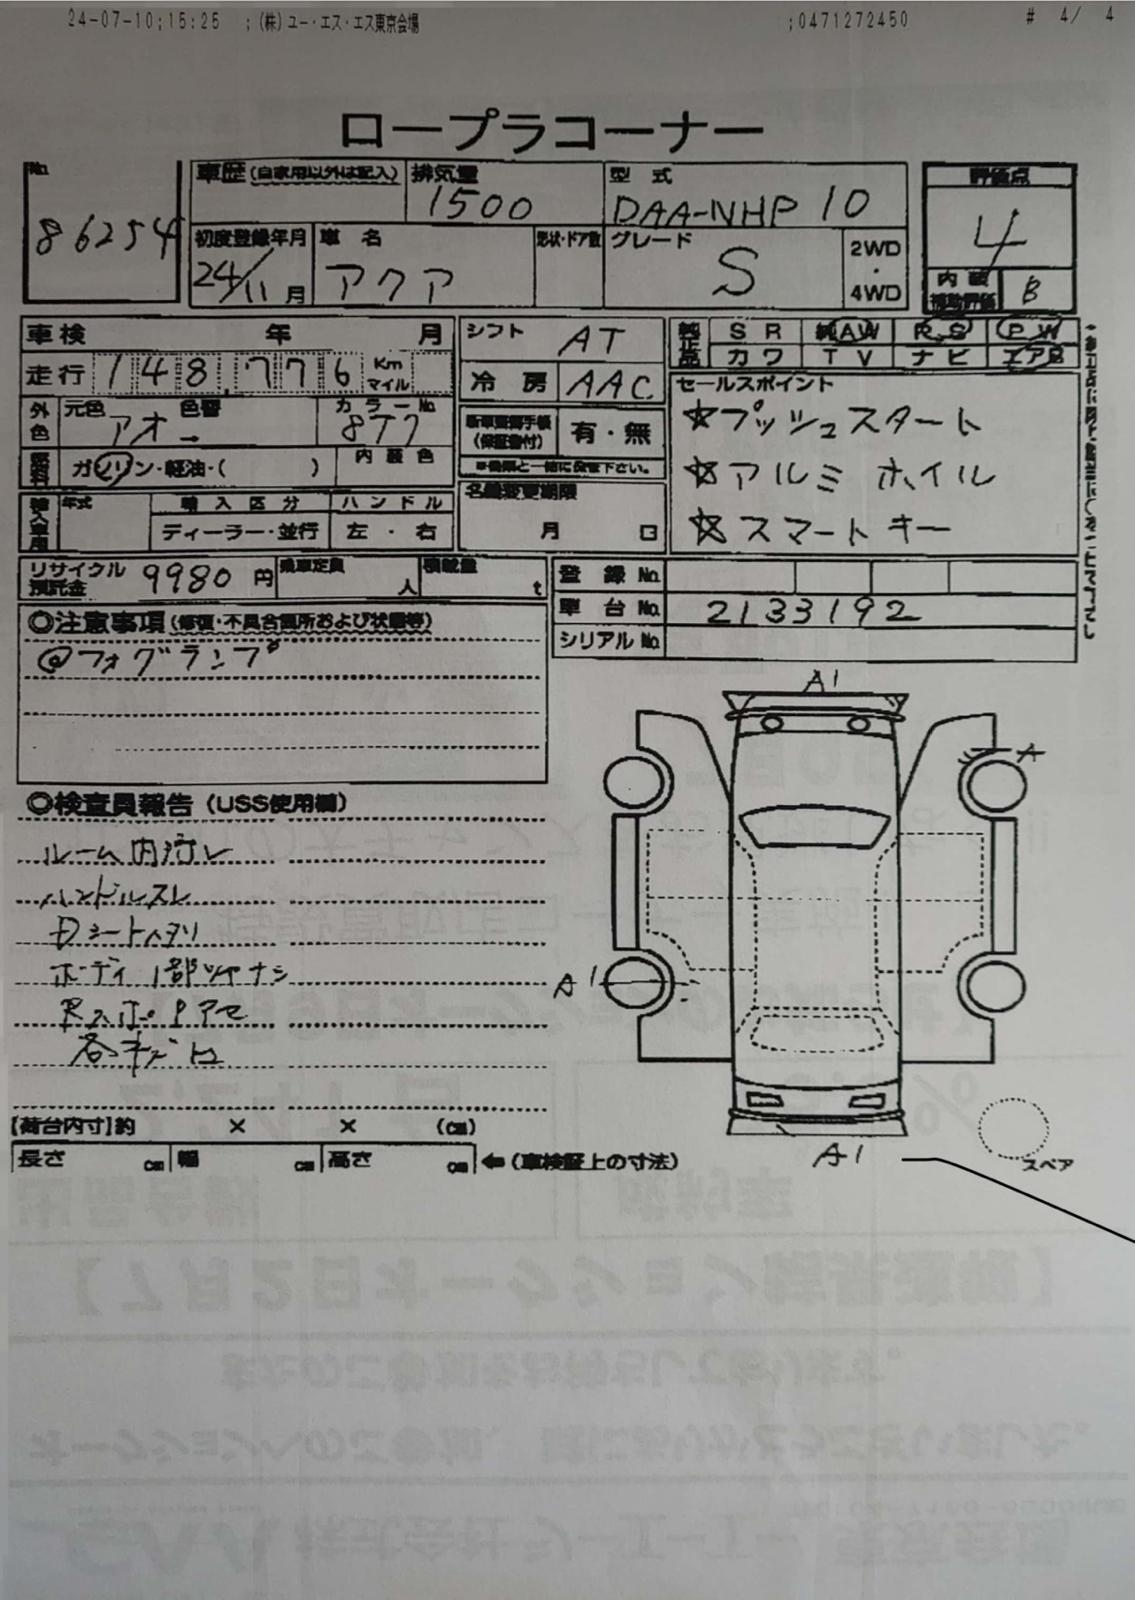 24-07-10;15:25 ;(株)ユー・エス・エス東京会場 ;0471272450 # 4/ 4
ロープラコーナー
No.
86254
車歴(自家用以外は記入)
排気量
1500
型式
DAA-NHP10
評価点
4
内装補助評価 B
初度登録年月
24/11月
車名
アクア
形状・ドア数
グレード
S
2WD・4WD
車検 年 月
走行 148,776 Km マイル
シフト AT
冷房 AAC
純正品 SR 純AW PS PW
カワ TV ナビ エアB
外色 元色 アオ 色替
カラーNo. 8T7
燃料 ガソリン・軽油・( )
内装色
新車整備手帳(保証書付) 有・無
※書類と一緒に保管下さい。
セールスポイント
☆プッシュスタート
☆アルミホイル
☆スマートキー
輸入車用 年式 輸入区分 ハンドル
ディーラー・並行 左・右
名義変更期限
月 日
リサイクル預託金 9980円
乗車定員 人
積載量 t
登録No.
車台No. 2133192
シリアルNo.
◎注意事項(修復・不具合箇所および状態等)
@フォグランプ
◎検査員報告(USS使用欄)
ルーム内汚レ
ハンドルスレ
Dシートヘタリ
ボディ1部ツヤナシ
各キズ凹
A1
A
A1
A1
スペア
【荷台内寸】約 × × (cm)
長さ cm 幅 cm 高さ cm ←(車検証上の寸法)